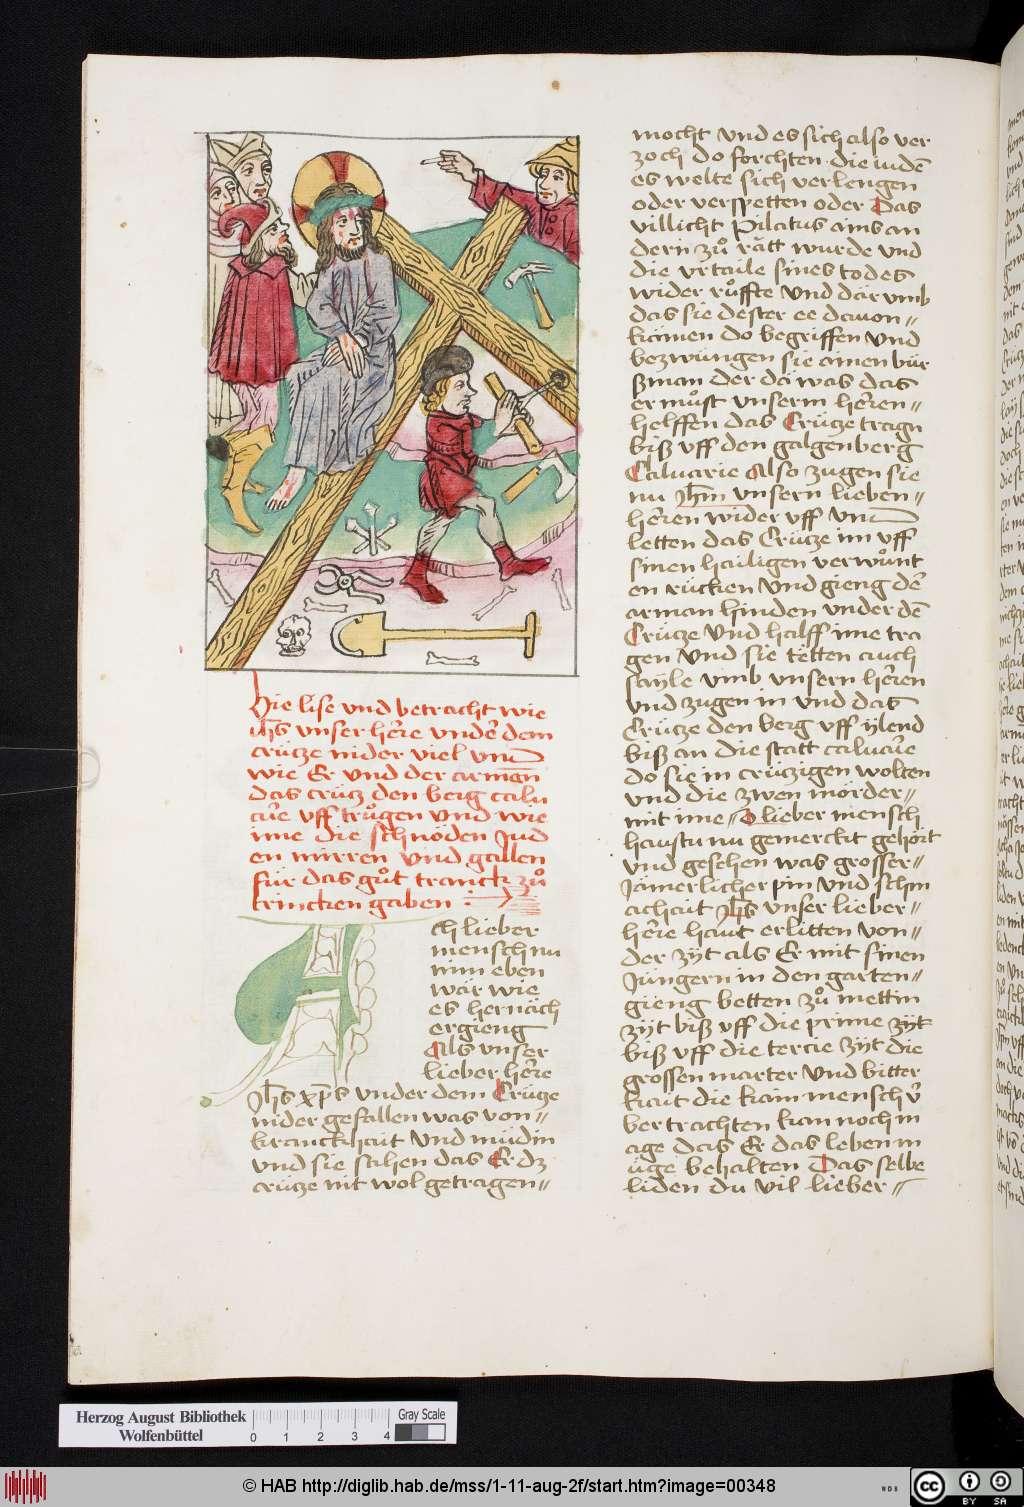 Hie lise vnd betracht wie
ih̄s vnser here vnder dem
crütze nider viel vnd
wie Er vnd der arman
das crütz den berg calu
arie vff trůgen vnd wie
ime die schnöden Jud
en mirren vnd gallen
für das gůt tranck zů
trincken gaben :
ch lieber
mensch nu
nim eben
war wie
es hernäch
ergieng
Als vnser
lieber here
Jh̄s xp̄s vnder dem Crütze
nider gefallen was von
kranckhait vnd müdin
vnd sie sahen das Er dz
crütze nit wol getragen
mocht vnd es sich also ver
zoch do forchten die iudē
es welte sich verlengen
oder verspetten oder Das
villicht Pilatus ains an
dern zů rätt wurde vnd
die vrtaile sines todes
wider růffte vnd där vmb
das sie dester ee dauon
kämen do begriffen vnd
bezwüngen sie ainen bür
ßman der da was das
er můst vnserm heren
helffen das Crütze tragn
biß vff den galgenberg
Caluarie Also zugen sie
nu Jh̄m vnsern lieben
heren wider vff vnd
letten das Crütze im vff
sinen hailigen verwůnt
en rücken vnd gieng dē
arman hinden vnder dē
Crütze vnd halff ime tra
gen vnd sie tetten auch
sayle vmb vnsern heren
vnd zugen in vnd das
Crütze den berg vff ÿlend
biß an die statt caluarie
do sie in crützigen wolten
vnd die zwen mörder
mit ime O lieber mensch
haustu nu gemerckt gehört
vnd gesehen was grosser
Jämerlicher pin vnd schm
achait Jh̄s vnser lieber
here haut erlitten von
der zÿt als Er mit sinen
Jüngern in den garten
gieng betten zů mettin
zÿt biß vff die prime zÿt
biß vff die tercie zÿt die
grossen marter vnd bitter
kait die kain mensch
betrachten kan noch in
age das Er das leben m
üge behalten Das selbe
liden du vil lieber
Herzog August Bibliothek
Wolfenbüttel
0 1 2 3 4
Gray Scale
© HAB http://diglib.hab.de/mss/1-11-aug-2f/start.htm?image=00348
WDB
cc
BY SA